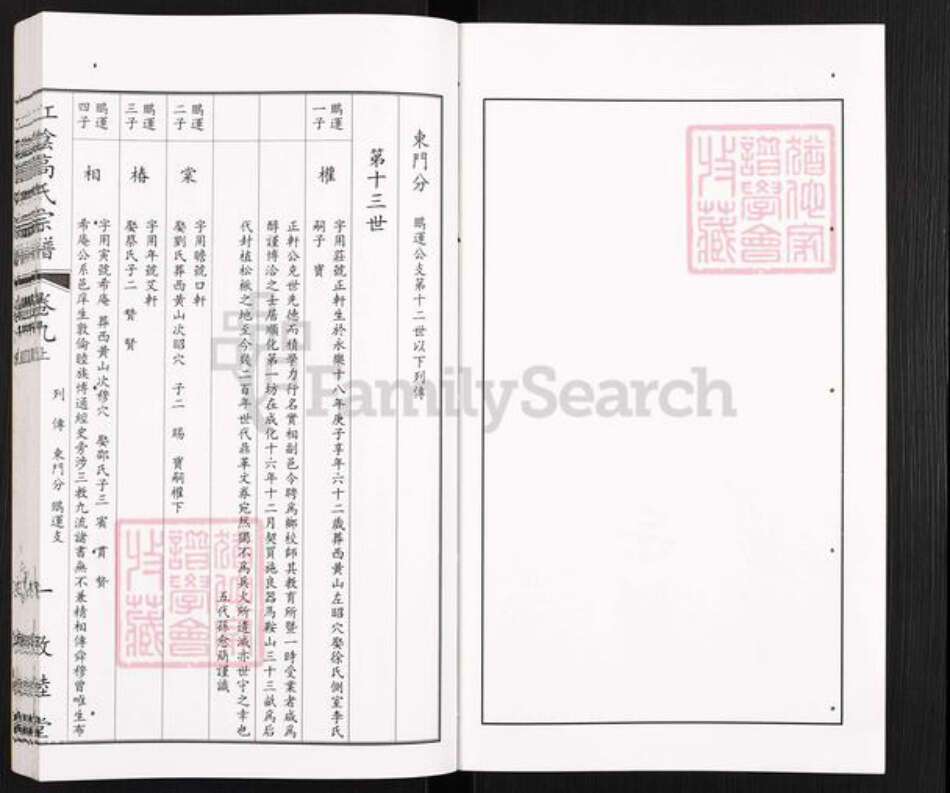 東門分 鵬運公支第十二世以下列傳
第十三世
鵬運一子 權 字用莊號正軒生於永樂十八年庚子享年六十二歲葬西黃山左昭穴娶徐氏側室李氏
嗣子 寶
正軒公克世先德而積學力行名實相副邑令聘爲鄉校師其教育所暨一時受業者咸爲
醇謹博洽之士居順化第一坊在成化十六年十二月契買施良器馬鞍山三十三畝爲后
代封植松楸之地至今幾二百年世代鼎革文券宛然獨不爲兵火所遺滅亦世守之幸也
五代孫愈 謹識
鵬運二子 棠 字用瞻號口軒
娶劉氏葬西黃山次昭穴 子二 賜 寶嗣權下
鵬運三子 椿 字用年號艾軒
娶蔡氏子二 賢 賢
鵬運四子 相 字用寅號希庵 葬西黃山次穆穴 娶邵氏子三 賓 貫 賢
希庵公系邑庠生敦倫睦族博通經史旁涉三教九流諸書無不兼精相傳舜穆曾唯生布
江陰高氏宗譜 卷九上 列傳 東門分 鵬運支 一 敦睦堂
猶他家譜學會收藏
猶他家譜學會收藏
FamilySearch